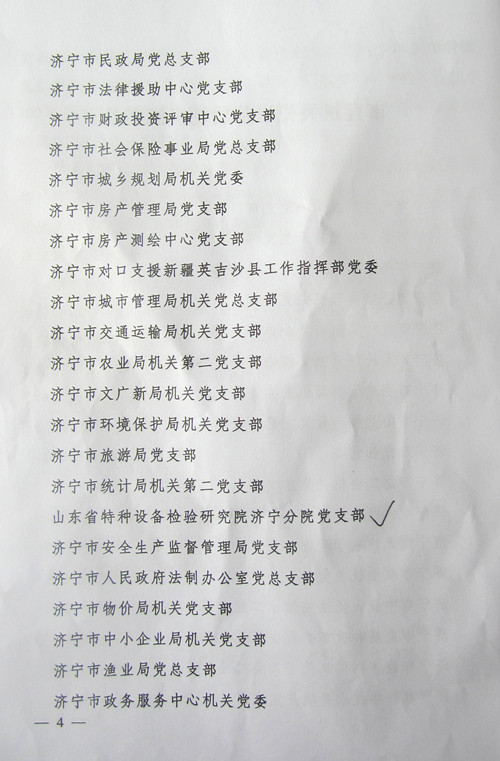 济宁市民政局党总支部
济宁市法律援助中心党支部
济宁市财政投资评审中心党支部
济宁市社会保险事业局党总支部
济宁市城乡规划局机关党委
济宁市房产管理局党支部
济宁市房产测绘中心党支部
济宁市对口支援新疆英吉沙县工作指挥部党委
济宁市城市管理局机关党总支部
济宁市交通运输局机关党支部
济宁市农业局机关第二党支部
济宁市文广新局机关党支部
济宁市环境保护局机关党支部
济宁市旅游局党支部
济宁市统计局机关第二党支部
山东省特种设备检验研究院济宁分院党支部
济宁市安全生产监督管理局党支部
济宁市人民政府法制办公室党总支部
济宁市物价局机关党支部
济宁市中小企业局机关党支部
济宁市渔业局党总支部
济宁市政务服务中心机关党委
— 4 —